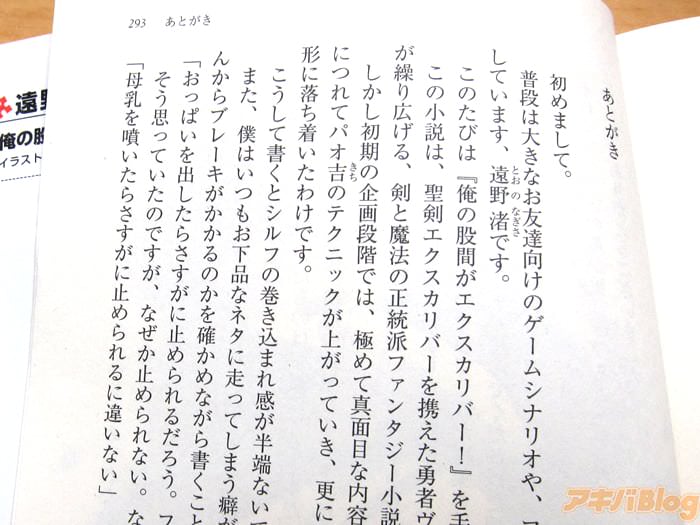 293 あとがき
あとがき
初めまして。
普段は大きなお友達向けのゲームシナリオや、
しています、遠野渚です。
とおの なぎさ
このたびは『俺の股間がエクスカリバー!』を手
この小説は、聖剣エクスカリバーを携えた勇者ヴ
が繰り広げる、剣と魔法の正統派ファンタジー小説
しかし初期の企画段階では、極めて真面目な内容
につれてパオ吉のテクニックが上がっていき、更に
きち
形に落ち着いたわけです。
こうして書くとシルフの巻き込まれ感が半端ない
また、僕はいつもお下品なネタに走ってしまう癖が
んからブレーキがかかるのかを確かめながら書くこと
「おっぱいを出したらさすがに止められるだろう。
そう思っていたのですが、なぜか止められない。な
「母乳を噴いたらさすがに止められるに違いない」
遠野
俺の股
イラスト
アキバBlog